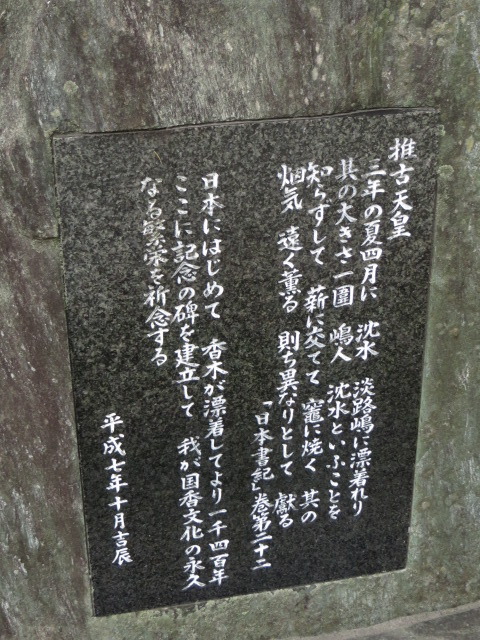 推古天皇
三年の夏四月に 沈水 淡路嶋に漂着れり
其の大きさ一圍 嶋人 沈水といふことを
知らずして 薪に交てて 竈に焼く 其の
烟気 遠く薫る 則ち異なりとして 献る
「日本書紀」巻第二十二
日本にはじめて 香木が漂着してより一千四百年
ここに記念の碑を建立して 我が国香文化の永久
なる繁栄を祈念する
平成七年十月吉辰